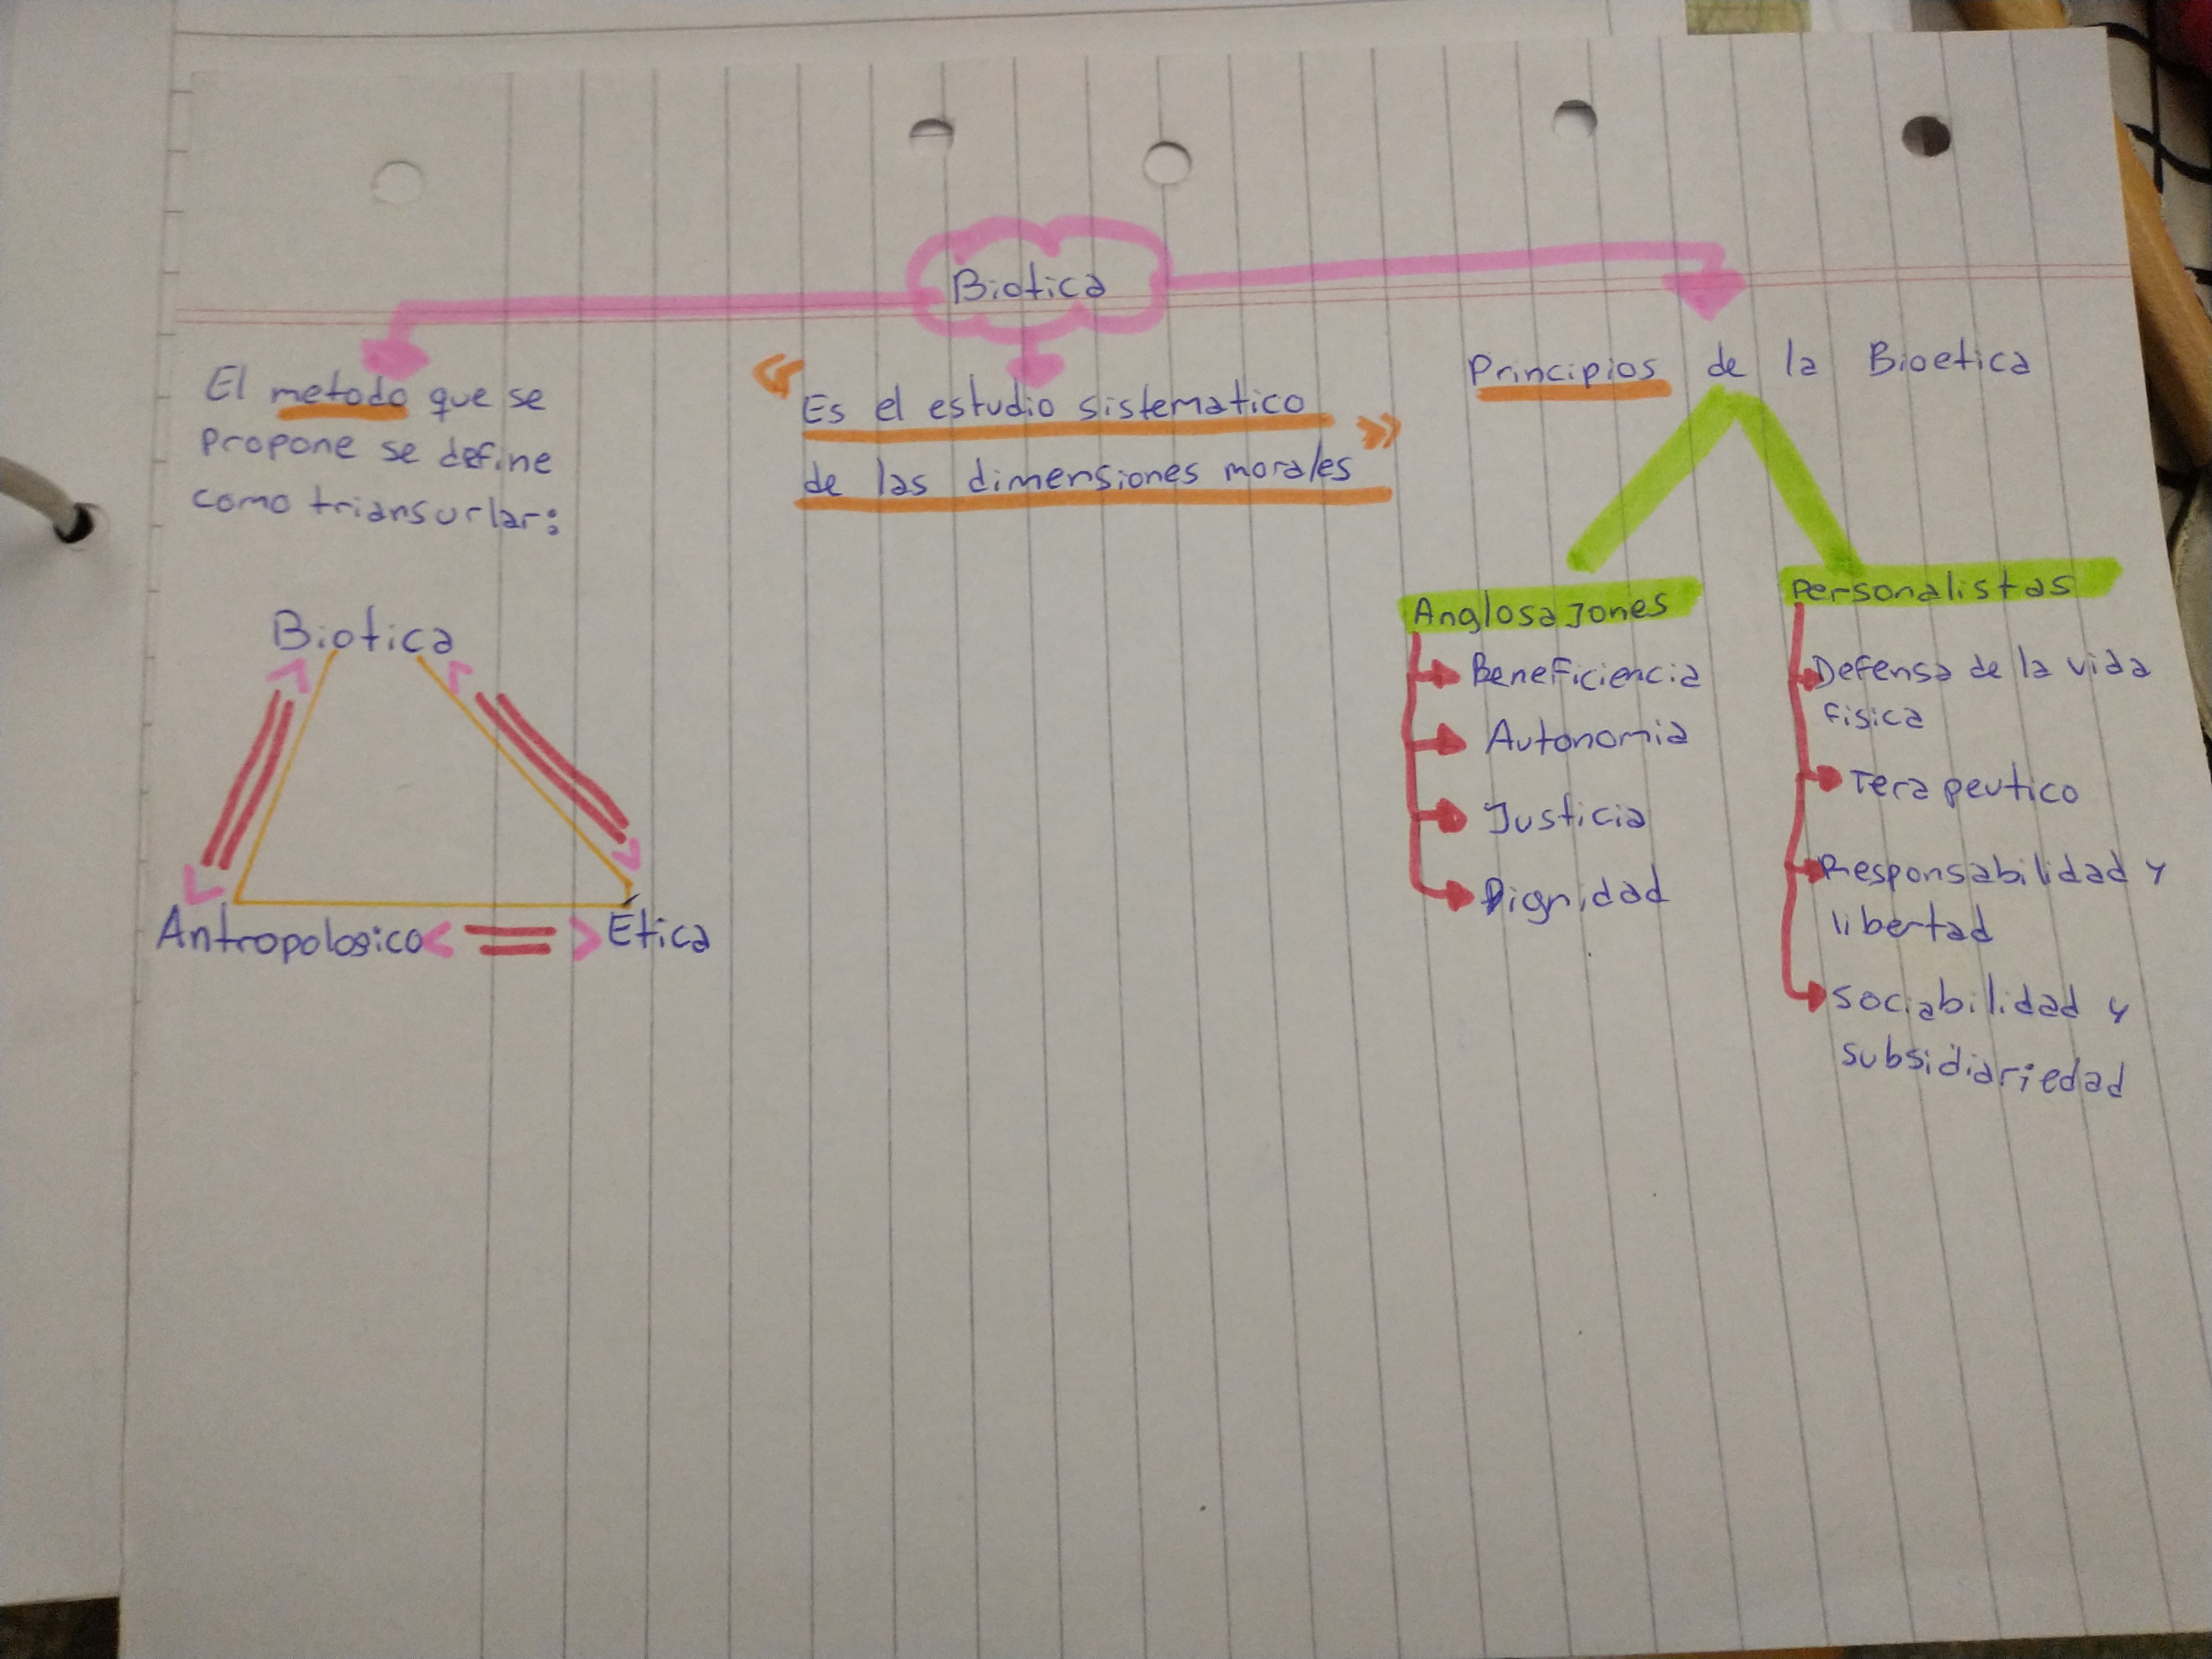 Biotica
El metodo que se
propone se define
como triansurlar:
Biotica
Antropologico
Etica
Es el estudio sistematico
de las dimensiones morales
Principios de la Bioetica
Anglosajones
Beneficiencia
Autonomia
Justicia
Dignidad
Personalistas
Defensa de la vida
fisica
Terapeutico
Responsabilidad y
libertad
Sociabilidad y
subsidiariedad